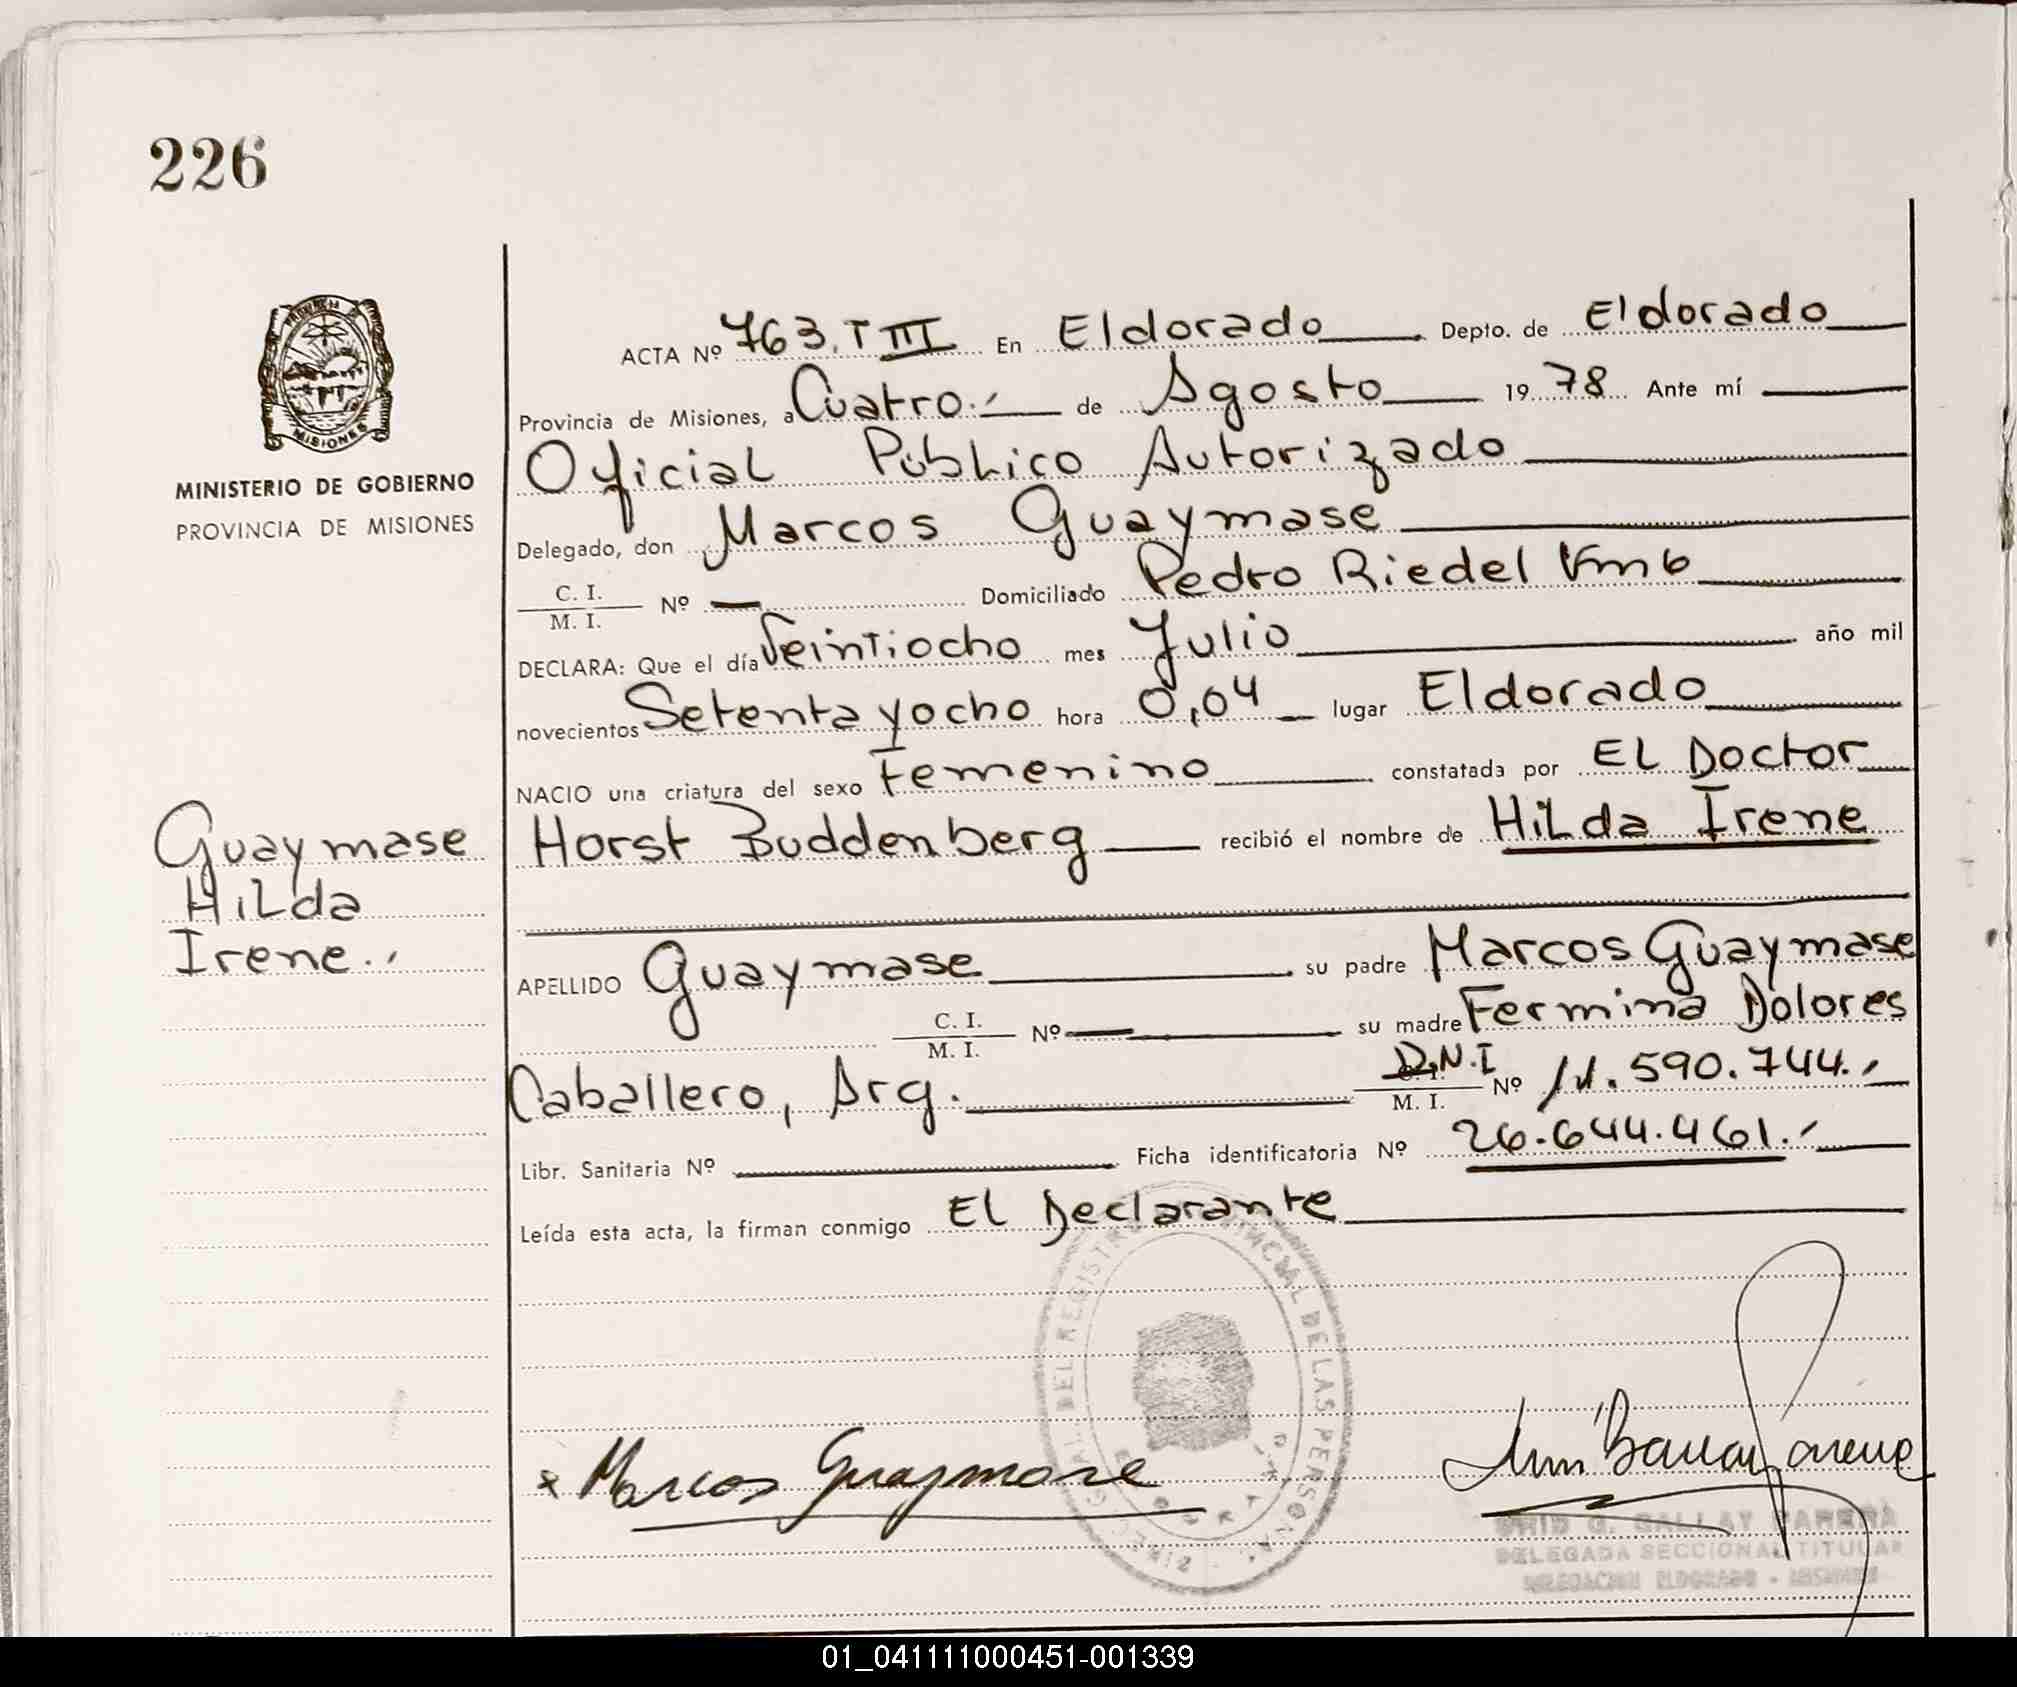 226
MISIONES
MINISTERIO DE GOBIERNO
PROVINCIA DE MISIONES
Guaymase
Hilda
Irene.,
ACTA Nº 763. T III En Eldorado Depto. de Eldorado
Provincia de Misiones, a Cuatro.- de Agosto 1978 Ante mí
Oficial Público Autorizado
Delegado, don Marcos Guaymase
C. I.
M. I. Nº — Domiciliado Pedro Riedel Km 6
DECLARA: Que el día Veintiocho mes Julio año mil
novecientos Setenta y ocho hora 0,04 lugar Eldorado
NACIO una criatura del sexo Femenino constatada por EL Doctor
Horst Buddenberg recibió el nombre de Hilda Irene
APELLIDO Guaymase su padre Marcos Guaymase
C. I.
M. I. Nº — su madre Fermina Dolores
Caballero, Arg. D.N.I
M. I. Nº 11.590.744.,
Libr. Sanitaria Nº Ficha identificatoria Nº 26.644.461.-
Leída esta acta, la firman conmigo El Declarante
DEL REGISTRO PROVINCIAL DE LAS PERSONAS
x Marcos Guaymase
G. GALLAY
DELEGADA SECCIONAL TITULAR
DELEGACION ELDORADO - MISIONES
01_041111000451-001339